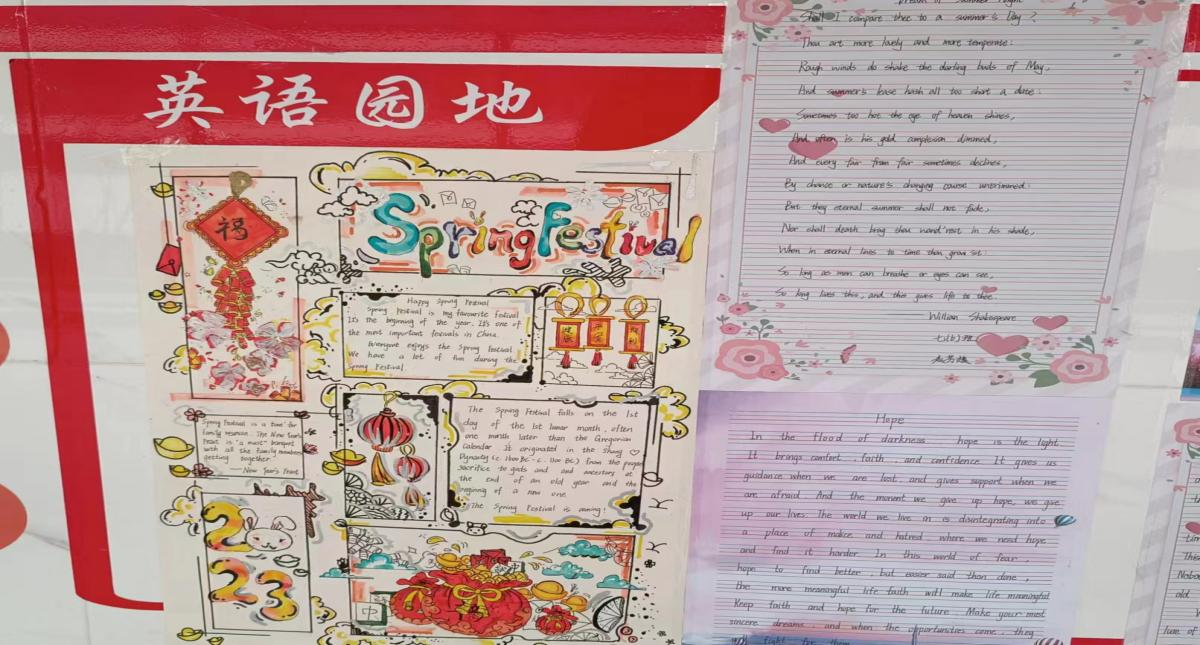 英语园地
福
Spring Festival
Happy Spring Festival
Spring Festival is my favourite festival
It's the beginning of the year. It's one of
the most important festivals in China.
Everyone enjoys the Spring Festival
We have a lot of fun during the
Spring Festival.
Spring Festival is a time for
family reunion. The New Year's
Feast is "a must" banquet
with all the family members
getting together
——New Year's Feast
The Spring Festival falls on the 1st
day of the 1st lunar month, often
one month later than the Gregorian
Calendar It originated in the Shang
Dynasty (c. 1600 BC-c. 1100 BC) from the people
sacrifice to gods and and ancestors at
the end of an old year and the
beginning of a new one.
The Spring Festival is coming!
2023
中
Shall I compare thee to a summer's Day?
Thou art more lovely and more temperate:
Rough winds do shake the darling buds of May,
And summer's lease hath all too short a date:
Sometimes too hot the eye of heaven shines,
And often is his gold complexion dimmed,
And every fair from fair sometimes declines,
By chance or nature's changing course untrimmed:
But thy eternal summer shall not fade,
Nor shall death brag thou wand'rest in his shade,
When in eternal lines to time thou grow'st:
So long as men can breathe or eyes can see,
So long lives this, and this gives life to thee.
William Shakespeare
Hope
In the flood of darkness hope is the light
It brings comfort, faith, and confidence It gives us
guidance when we are lost, and gives support when we
are afraid And the moment we give up hope, we give
up our lives. The world we live in is disintegrating into
a place of malice and hatred, where we need hope
and find it harder. In this world of fear,
hope to find better, but easier said than done,
the more meaningful life faith will make life meaningful
Keep faith and hope for the future. Make your most
sincere dreams, and when the opportunities come, they
fight for them